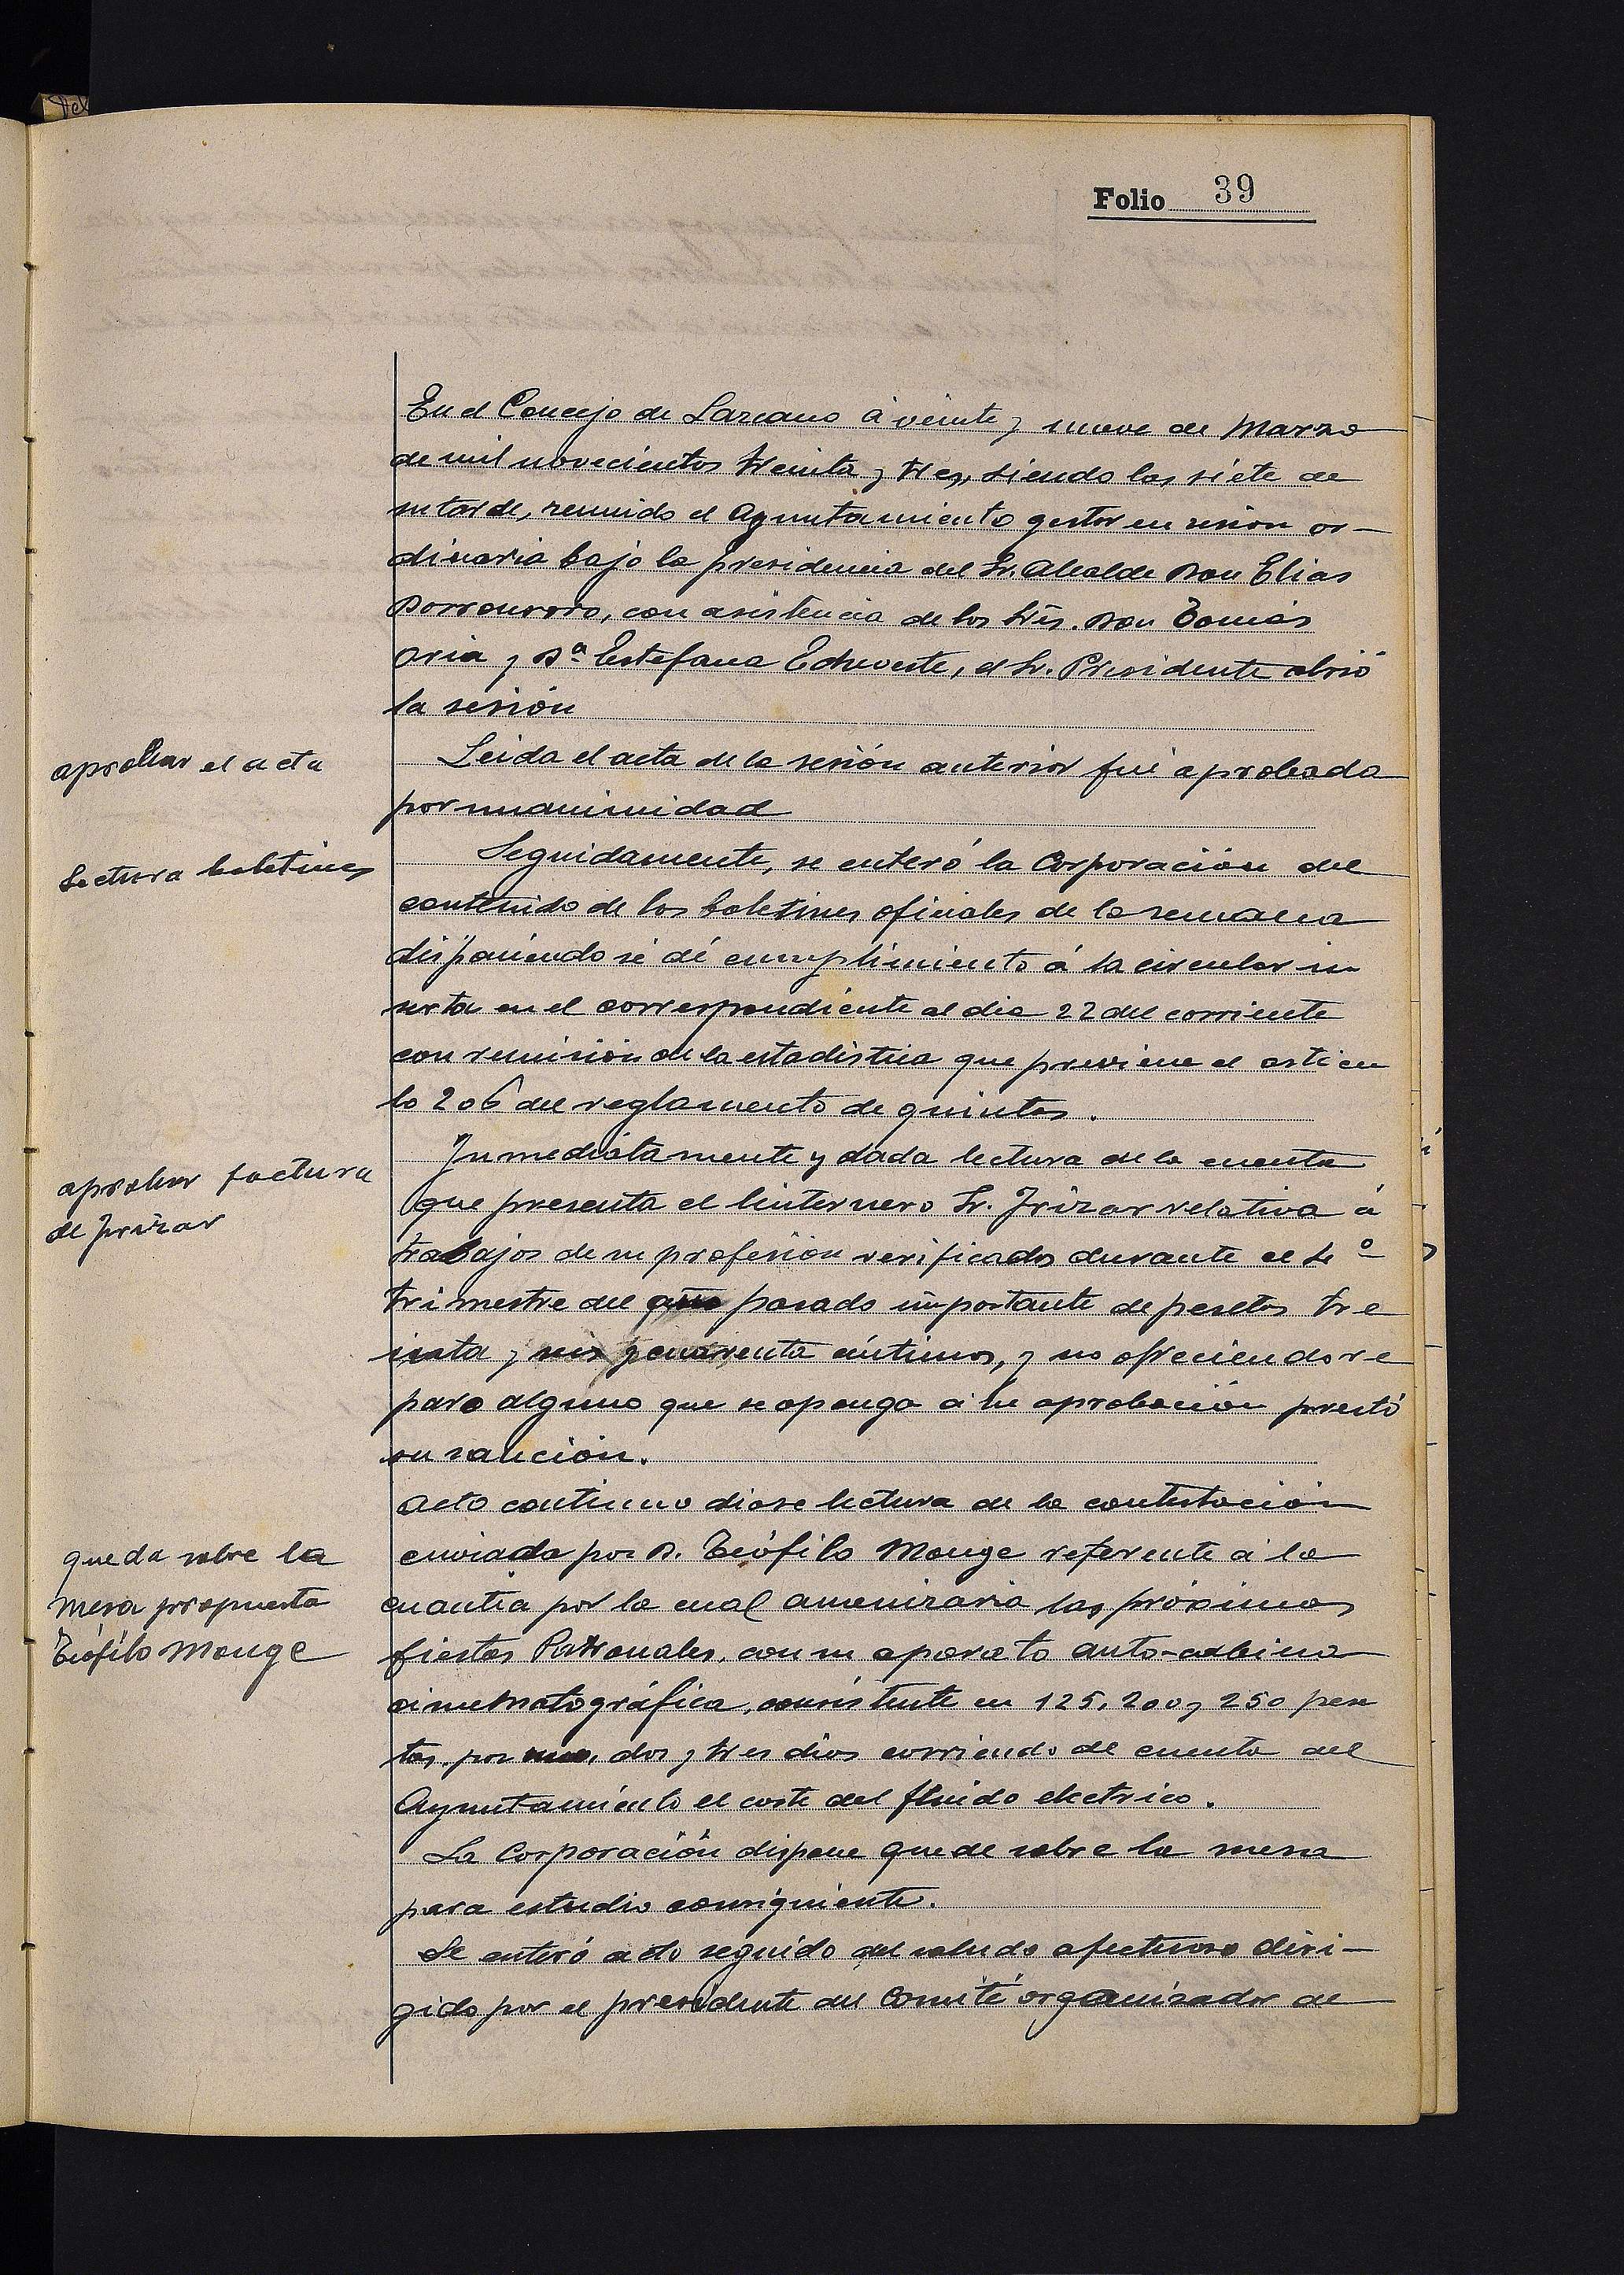 Folio 39
En el Concejo de Lazcano á veinte y nueve de Marzo
de mil novecientos treinta y tres, siendo las siete de
su tarde, reunido el Ayuntamiento gestor en sesion or-
dinaria bajo la presidencia del Sr. Alcalde Don Elias
Dorronsoro, con asistencia de los Srs. Don Tomás
Oria y Dª Estefana Echeveste, el Sr. Presidente abrió
la sesión
aprobar el acta
Leida el acta de la sesión anterior fué aprobada
por unanimidad
Lectura boletines
Seguidamente, se enteró la Corporación del
contenido de los boletines oficiales de la semana
disponiendo se dé cumplimiento á la circular in
serta en el correspondiente al dia 22 del corriente
con remisión de la estadística que previene el articu
lo 206 del reglamento de quintas.
aprobar factura
de Irizar
Inmediatamente y dada lectura de la cuenta
que presenta el linternero Sr. Irizar relativa á
trabajos de su profesión verificados durante el 4º
trimestre del año pasado importante de pesetas tre
inta y seis y cuarenta céntimos, y no ofreciendo re
paro alguno que se oponga á su aprobación prestó
su sanción.
Acto continuo diose lectura de la contestación
queda sobre la
mesa propuesta
Teófilo Monge
enviada por D. Teófilo Monge referente á la
cuantía por la cual amenizaria las próximas
fiestas Patronales, con su aparato auto-cabina
cinematográfica, consistente en 125, 200 y 250 pese
tas por uno, dos y tres dias corriendo de cuenta del
Ayuntamiento el coste del fluido electrico.
La Corporación dispone quede sobre la mesa
para estudio consiguiente.
Se enteró acto seguido del saludo afectuoso diri-
gido por el presidente del Comité organizador de